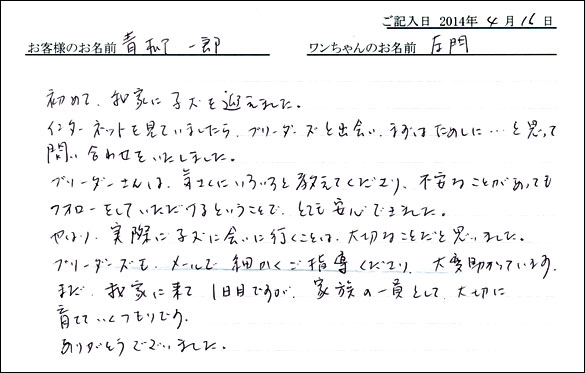 ご記入日 2014年 4月 16日
お客様のお名前 青松 一郎 ワンちゃんのお名前 左門
初めて、我家に子犬を迎えました。
インターネットを見ていましたら、ブリーダーズと出会い、まずはためしに…と思って
問い合わせをいたしました。
ブリーダーさんは、気さくにいろいろと教えてくださり、不安なことがあっても
フォローをしていただけるということで、とても安心できました。
やはり、実際に子犬に会いに行くことは、大切なことだと思いました。
ブリーダーズも、メールで細かくご指導くださり、大変助かっています。
まだ、我家に来て1日目ですが、家族の一員として、大切に
育てていくつもりです。
ありがとうございました。